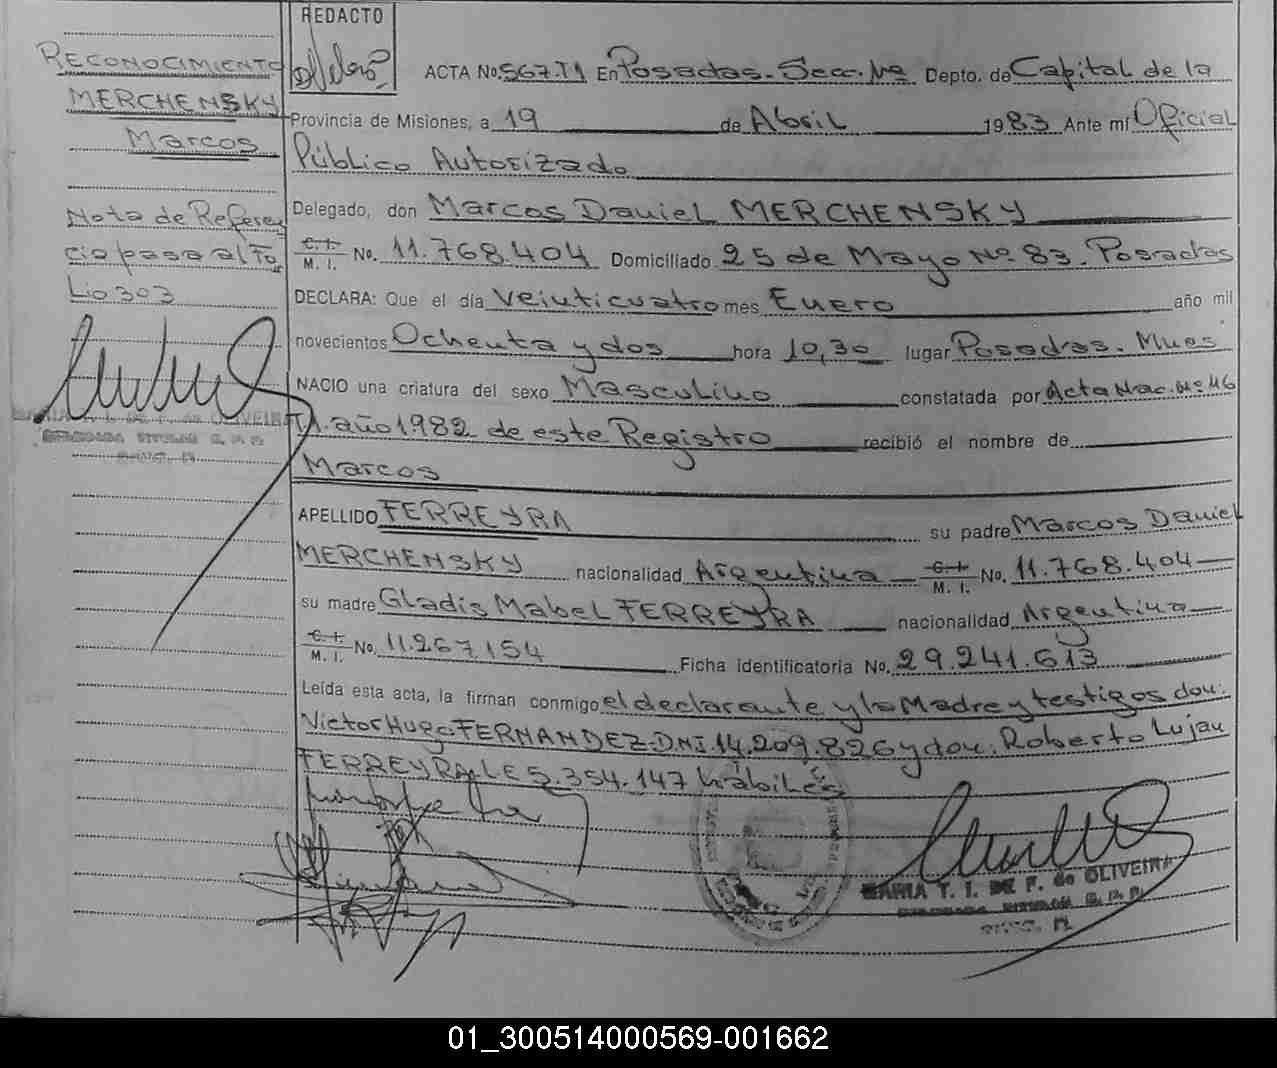 RECONOCIMIENTO
MERCHENSKY
Marcos
Nota de Referen
cia pasa al Fo
Lio 303
MARIA T. I. DE F. de OLIVEIRA
REDACTO
ACTA No. 567.T1 En Posadas. Secc. 1ra Depto. de Capital de la
Provincia de Misiones, a 19 de Abril 1983 Ante mí Oficial
Público Autorizado
Delegado, don Marcos Daniel MERCHENSKY
C.I. M. I. No. 11.768.404 Domiciliado 25 de Mayo Nº 83. Posadas
DECLARA: Que el día Veinticuatro mes Enero año mil
novecientos Ochenta y dos hora 10,30 lugar Posadas. Mnes
NACIO una criatura del sexo Masculino constatada por Acta Nac. Nº 46
T1. año 1982 de este Registro recibió el nombre de
Marcos
APELLIDO FERREYRA su padre Marcos Daniel
MERCHENSKY nacionalidad Argentina C.I. M. I. No. 11.768.404
su madre Gladis Mabel FERREYRA nacionalidad Argentina
C.I. M. I. No. 11.267.154 Ficha identificatoria No. 29.241.613
Leída esta acta, la firman conmigo el declarante y la Madre y testigos don:
Victor Hugo FERNANDEZ-DNI. 14.209.826 y don: Roberto Lujan
FERREYRA, LE 5.354.147 hábiles
MARIA T. I. DE F. de OLIVEIRA
01_300514000569-001662